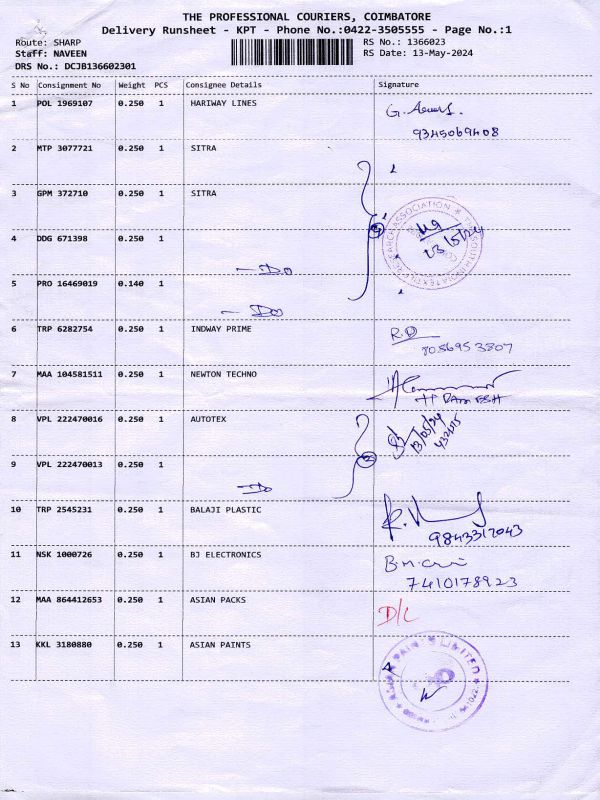 THE PROFESSIONAL COURIERS, COIMBATORE
Delivery Runsheet - KPT - Phone No.:0422-3505555 - Page No.:1
Route: SHARP
RS No.: 1366023
Staff: NAVEEN
RS Date: 13-May-2024
DRS No.: DCJB136602301
S No Consignment No Weight PCS Consignee Details Signature
1 POL 1969107 0.250 1 HARIWAY LINES
9345069408
2 MTP 3077721 0.250 1 SITRA
3 GPM 372710 0.250 1 SITRA
4 DDG 671398 0.250 1
- Do
5 PRO 16469019 0.140 1
- Do
6 TRP 6282754 0.250 1 INDWAY PRIME
8056953807
7 MAA 104581511 0.250 1 NEWTON TECHNO
8 VPL 222470016 0.250 1 AUTOTEX
13/05/24
9 VPL 222470013 0.250 1
- Do
10 TRP 2545231 0.250 1 BALAJI PLASTIC
9843317043
11 NSK 1000726 0.250 1 BJ ELECTRONICS
7410178923
12 MAA 864412653 0.250 1 ASIAN PACKS
D/L
13 KKL 3180880 0.250 1 ASIAN PAINTS
ASIAN PAINTS LIMITED